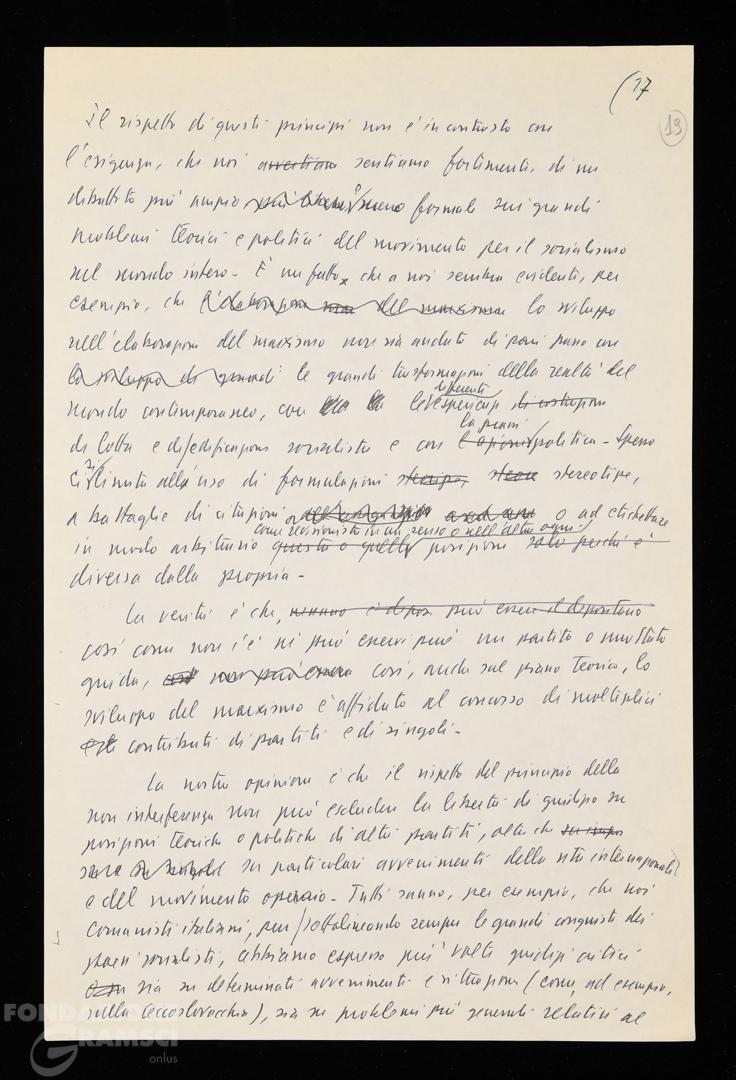 (17
19
Il rispetto di questi principi non è in contrasto con
l'esigenza, che noi avvertiam sentiamo fortemente, di un
dibattito più ampio e meno formale sui grandi
problemi teorici e politici del movimento per il socialismo
nel mondo intero - È un fatto, che a noi sembra evidente, per
esempio, che l'elaborazione del marxismo lo sviluppo
nell'elaborazione del marxismo non sia andato di pari passo con
lo sviluppo di generali le grandi trasformazioni della realtà del
mondo contemporaneo, con le esperienze di costruzione
di lotta e di edificazione socialista e con la prassi politica - Spesso
ci si limita all'uso di formulazioni stereotipe,
a battaglie di citazioni o ad etichettare
come revisionista in un senso o nell'altro ogni
in modo arbitrario questa o quella posizione solo perché è
diversa dalla propria -
La verità è che, nessuno è depos può essere il depositario
così come non c'è né può esservi più un partito o uno Stato
guida, non può essere così, anche sul piano teorico, lo
sviluppo del marxismo è affidato al concorso di molteplici
contributi di partiti e di singoli -
La nostra opinione è che il rispetto del principio della
non interferenza non può escludere la libertà di giudizio su
posizioni teoriche o politiche di altri partiti, oltre che
su particolari avvenimenti della vita internazionale
e del movimento operaio - Tutti sanno, per esempio, che noi
comunisti italiani, pur sottolineando sempre le grandi conquiste dei
paesi socialisti, abbiamo espresso più volte giudizi critici
sia su determinati avvenimenti e situazioni (come, ad esempio,
sulla Cecoslovacchia), sia su problemi più generali relativi al
FONDAZIONE
GRAMSCI
onlus